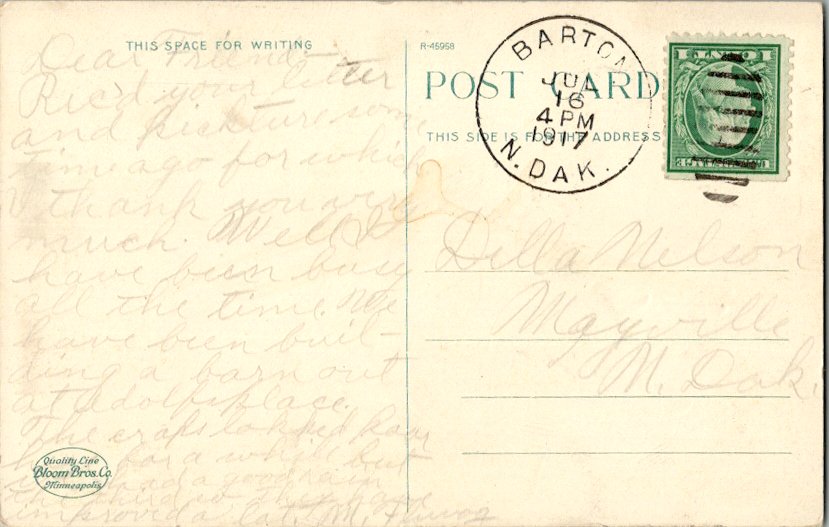 THIS SPACE FOR WRITING
Dear Friend
Rec'd your letter
and pickture some
time ago for which
I thank you very
much. Well I
have been busy
all the time. We
have been buil-
ding a barn out
at Adolfs place.
The crops looked
for a while but
had a good rain
the
improved a lot. M.
Quality Line
Bloom Bros. Co.
Minneapolis
R-45958
POST CARD
THIS SIDE IS FOR THE ADDRESS
BARTON
JUL
16
4 PM
1917
N. DAK.
1 CENT 1
Della Nelson
Mayville
N. Dak.